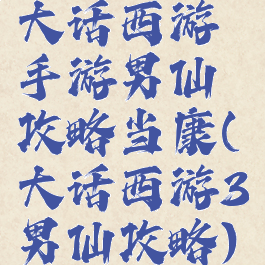 大话西游
手游男仙
攻略当康(
大话西游3
男仙攻略)